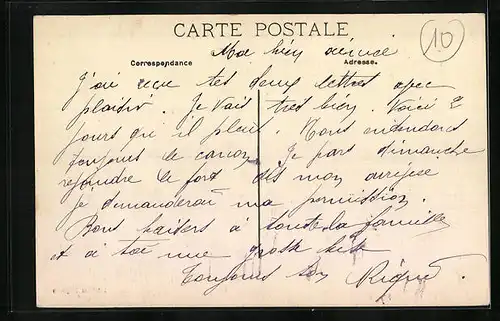 CARTE POSTALE
10
Ma bien aimée
Correspondance
Adresse.
J'ai reçu tes deux lettres avec
plaisir. Je vais très bien. Voici 2
jours qu'il pleut. Nous entendons
toujours le canon. Je pars dimanche
rejoindre le fort dès mon arrivée
je demanderai ma permission.
Bons baisers à toute la famille
et à toi une grosse
Toujours ton